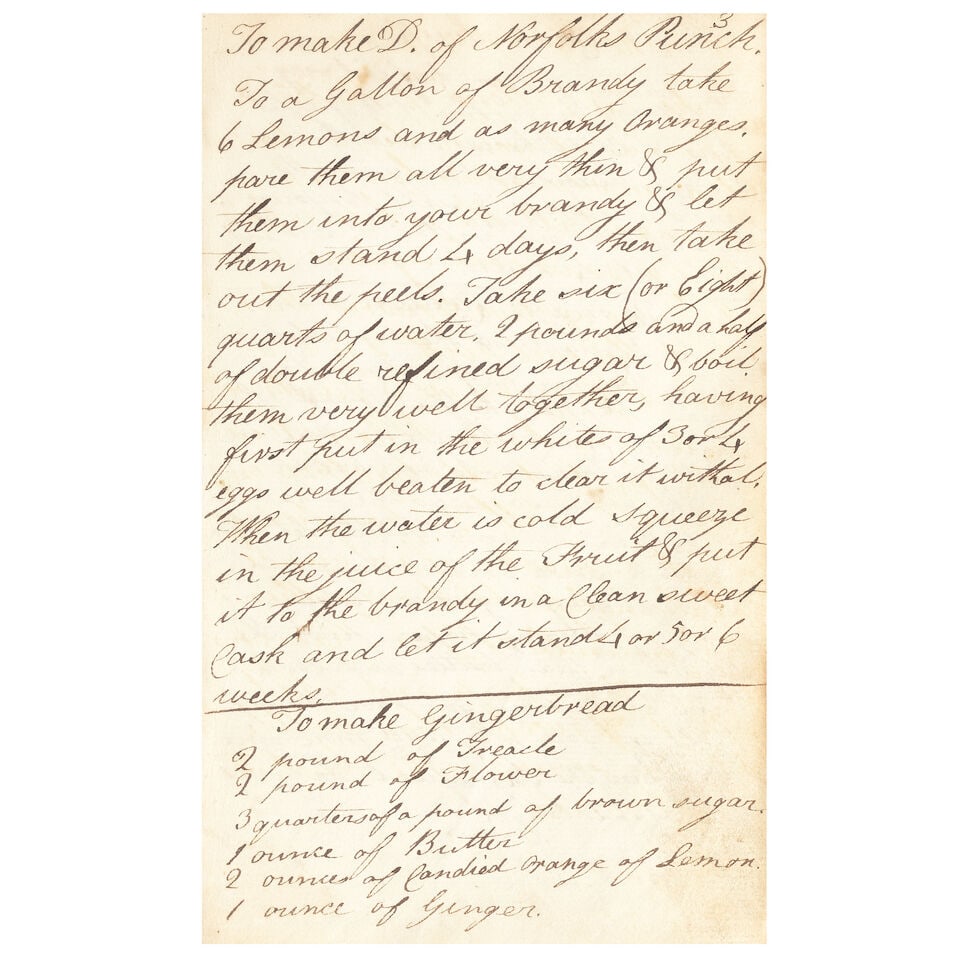 3
To make D. of Norfolks Punch.
To a Gallon of Brandy take
6 Lemons and as many Oranges.
pare them all very thin & put
them into your brandy & let
them stand 4 days, then take
out the peels. Take six (or Eight)
quarts of water, 2 pounds and a half
of double refined sugar & boil
them very well together, having
first put in the whites of 3 or 4
eggs well beaten to clear it withal.
When the water is cold squeeze
in the juice of the Fruit & put
it to the brandy in a Clean sweet
Cask and let it stand 4 or 5 or 6
weeks.
To make Gingerbread
2 pound of Treacle
2 pound of Flower
3 quarters of a pound of brown sugar.
1 ounce of Butter
2 ounces of Candied Orange of Lemon.
1 ounce of Ginger.